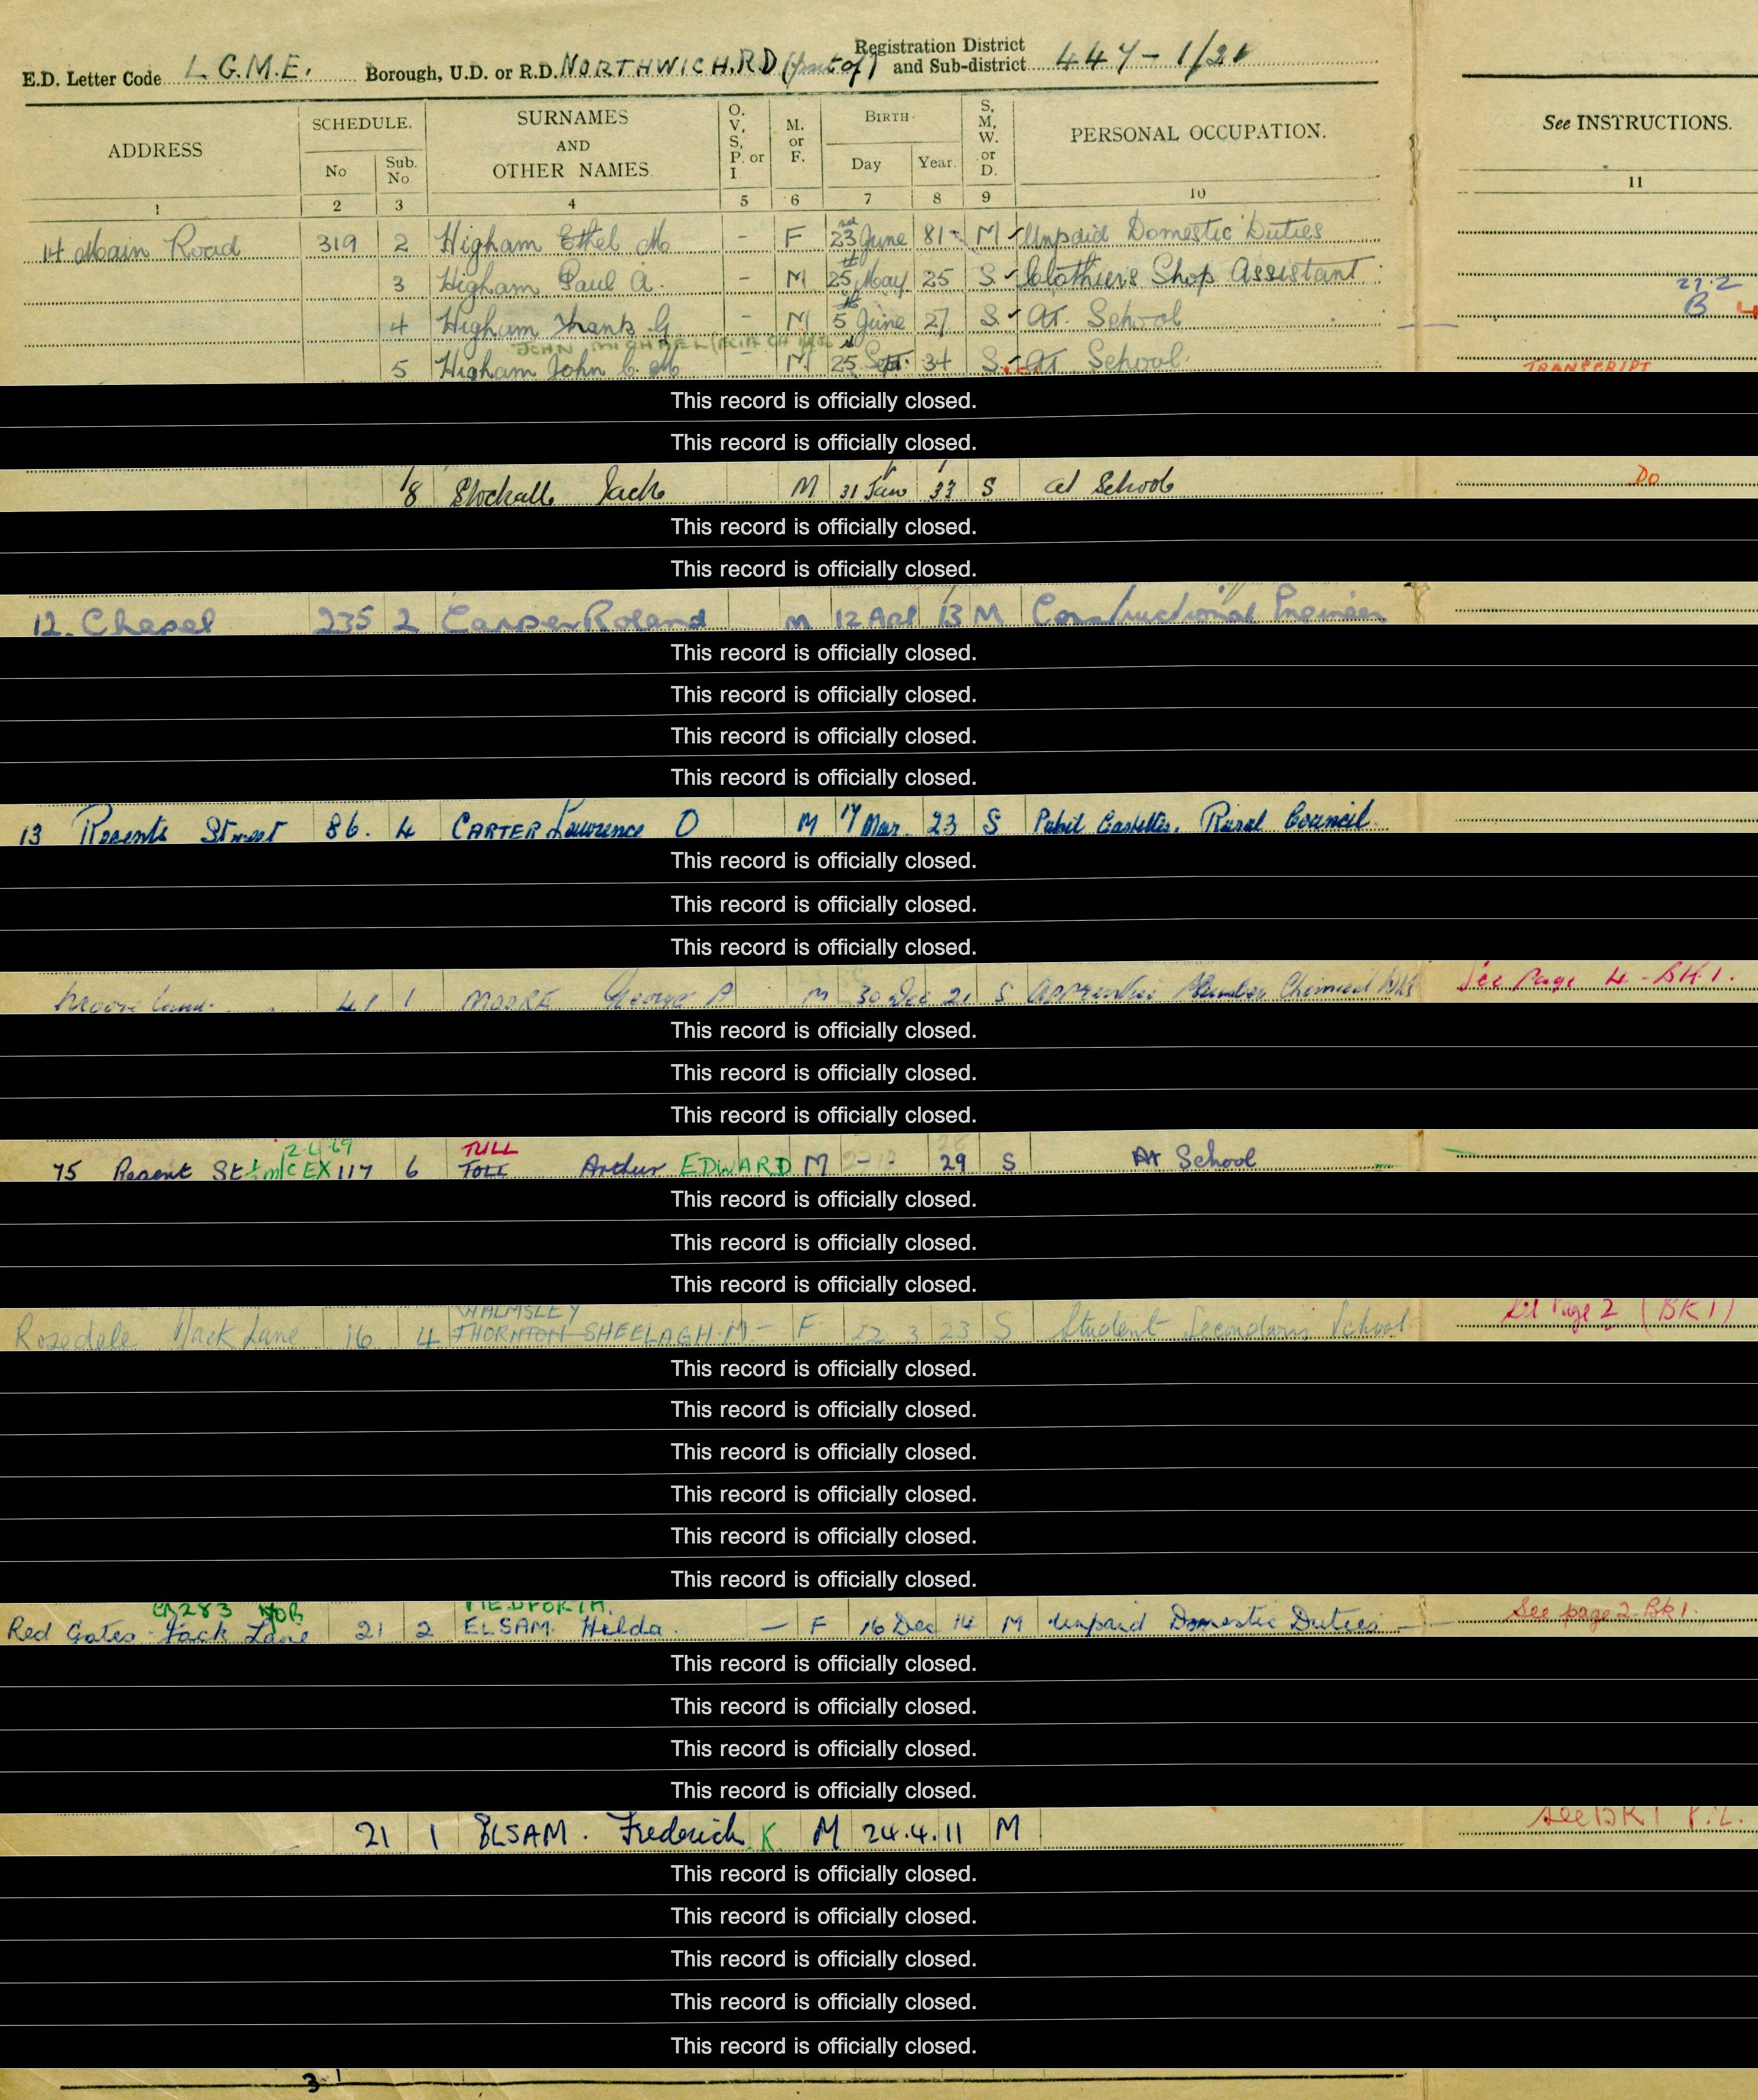 E.D. Letter Code L.G.M.E. Borough, U.D. or R.D. NORTHWICH.R.D (part of) Registration District and Sub-district 447 - 1/21
ADDRESS SCHEDULE. SURNAMES AND OTHER NAMES O. V, S, P. or I M. or F. BIRTH. S, M, W. or D. PERSONAL OCCUPATION. See INSTRUCTIONS.
No Sub. No Day Year.
1 2 3 4 5 6 7 8 9 10 11
14 Main Road 319 2 Higham Ethel M. - F 23rd June 81 M Unpaid Domestic Duties
3 Higham Paul A. - M 25th May 25 S Clothiers Shop Assistant 27.2
4 Higham Frank G. - M 5th June 27 S At School B
JOHN MICHAEL
5 Higham John C. M - M 25th Sept. 34 S At School TRANSCRIPT
This record is officially closed.
This record is officially closed.
8 Stockall Jack M 31 Jan 33 S at School Do
This record is officially closed.
This record is officially closed.
12. Chapel 235 2 Casper Roland M 12 Apl 13 M Constructional Engineer
This record is officially closed.
This record is officially closed.
This record is officially closed.
This record is officially closed.
13 Regents Street 86. 4 CARTER Lawrence O M 17 Mar. 23 S Rural Council
This record is officially closed.
This record is officially closed.
This record is officially closed.
41 1 MOORE George A M 30 Dec 21 S Apprentice Plumber Chemical Wks See Page 4 - BK 1.
This record is officially closed.
This record is officially closed.
This record is officially closed.
2.4.69 TULL
75 Regent St EX 117 6 TOLL Arthur EDWARD M - - 29 S At School
This record is officially closed.
This record is officially closed.
This record is officially closed.
WALMSLEY
Rosedale Jack Lane 16 4 THORNTON SHEELAGH. M - F 22 3 23 S Student Secondary School Page 2 (BK 1)
This record is officially closed.
This record is officially closed.
This record is officially closed.
This record is officially closed.
This record is officially closed.
This record is officially closed.
283 MEDFORTH.
Red Gates Jack Lane 21 2 ELSAM. Hilda. - F 16 Dec 14 M Unpaid Domestic Duties See page 2. Bk 1.
This record is officially closed.
This record is officially closed.
This record is officially closed.
This record is officially closed.
21 1 ELSAM. Frederick K. M 24.4.11 M See BK 1 P. 2.
This record is officially closed.
This record is officially closed.
This record is officially closed.
This record is officially closed.
This record is officially closed.
3